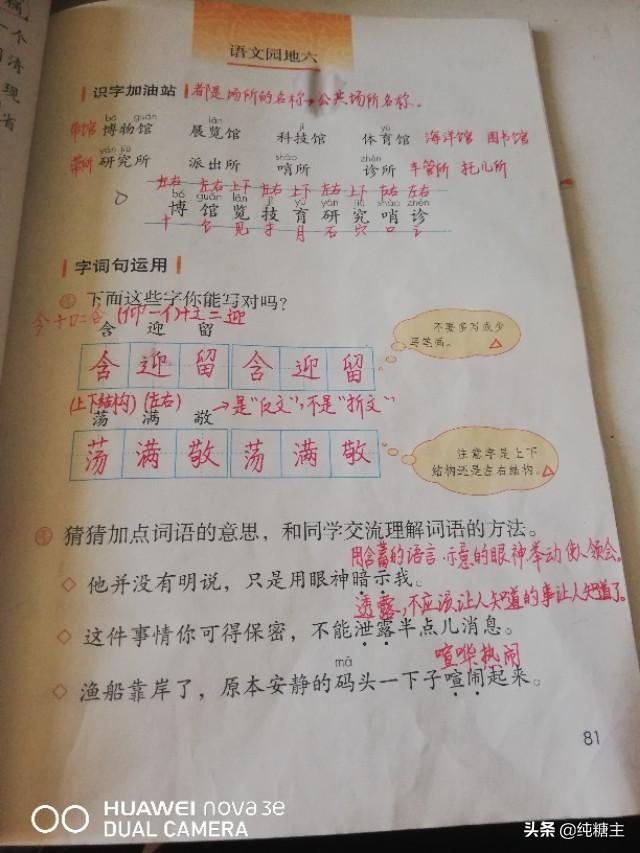 语文园地六
识字加油站 都是场所的名称→公共场所名称。
bó guǎn lǎn jì yù
博物馆 展览馆 科技馆 体育馆 海洋馆 图书馆
yán jiū shào zhěn
研究所 派出所 哨所 诊所 车管所 托儿所
左右 左右 上下 左右 上下 左右 上下 左右 左右
bó guǎn lǎn jì yù yán jiū shào zhěn
博 馆 览 技 育 研 究 哨 诊
十 饣 见 扌 月 石 穴 口 讠
字词句运用
下面这些字你能写对吗?
含 迎 留
不要多写或少
写笔画。
含 迎 留 含 迎 留
(上下结构) (左右) →是“反文”,不是“折文”
荡 满 敬
荡 满 敬 荡 满 敬
注意字是上下
结构还是左右结构。
猜猜加点词语的意思,和同学交流理解词语的方法。
用含蓄的语言、示意的眼神举动使人领会。
◇ 他并没有明说,只是用眼神暗示我。
透露,不应该让人知道的事让人知道了。
◇ 这件事情你可得保密,不能泄露半点儿消息。
喧哗热闹
mǎ
◇ 渔船靠岸了,原本安静的码头一下子喧闹起来。
81
HUAWEI nova 3e
DUAL CAMERA
头条 @纯糖主